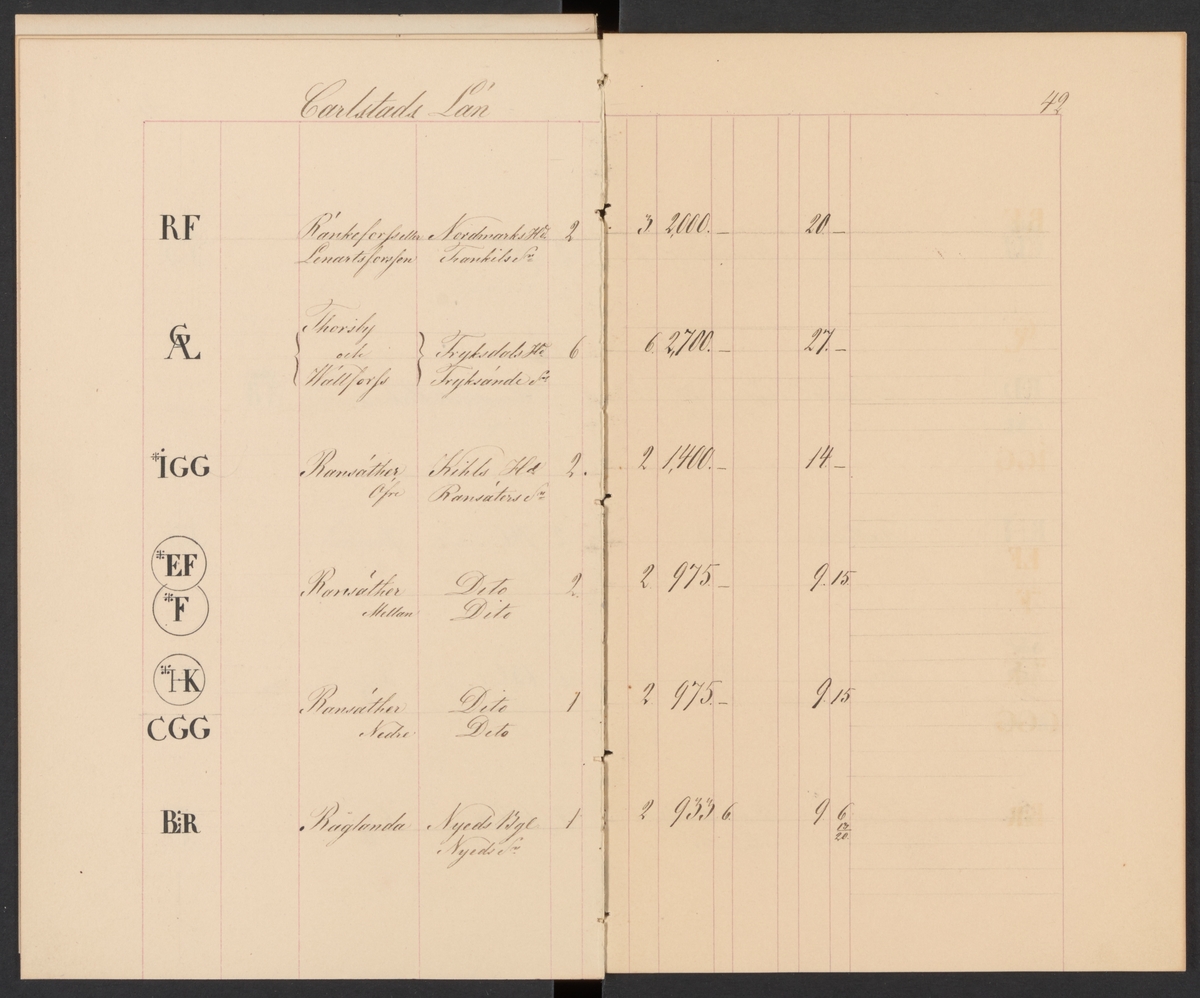 Carlstads Län
42
RF Ränkeforss eller Nordmarks Hd 2 3 2,000. — 20. —
Lenartsforssen Trankils Sn
Thorsby
GAL och Fryksdals Hd 6 6 2,700. — 27. —
Wältforss Fryksände Sn
*IGG Ransäther Kihls Hd 2. 2 1,400. — 14 —
Öfre Ransäters Sn
*EF
Ransäther Dito 2. 2 975. — 9. 15.
*F Mellan Dito
*HK
Ransäther Dito 1 2 975. — 9. 15
CGG Nedre Dito
BiR Råglanda Nyeds Bgl 1 2 933 6. 9 6
Nyeds Sn 20